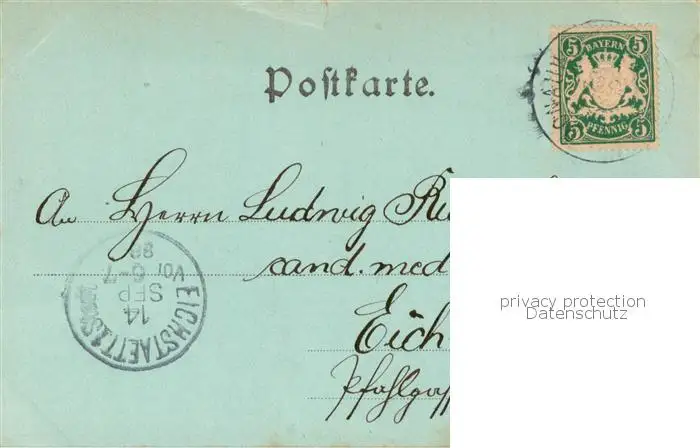 Postkarte.
5 BAYERN 5
5 PFENNIG 5
An Herrn Ludwig
cand. med
Eich
Pfahlgas
EICHSTAETT
14
SEP
Vor 6-7
privacy protection
Datenschutz